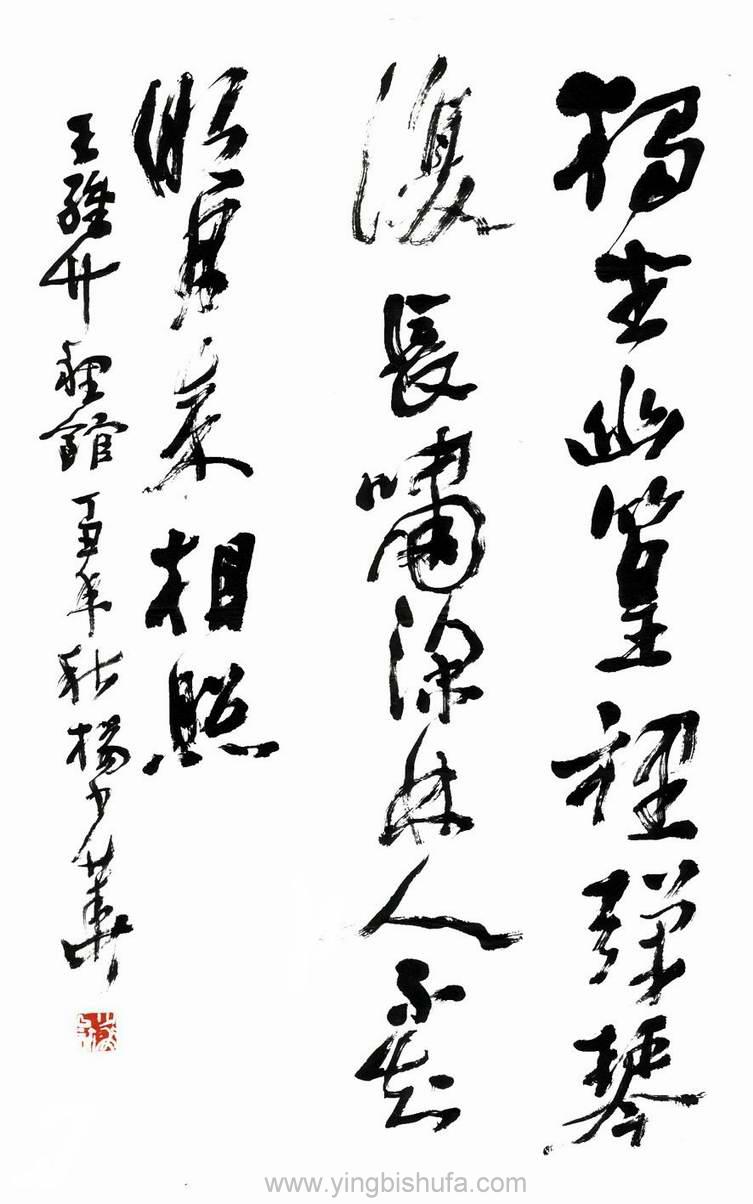 獨坐幽篁裡彈琴
復長嘯深林人不知
明月來相照
王維竹裡館 丁丑年秋楊少華
www.yingbishufa.com